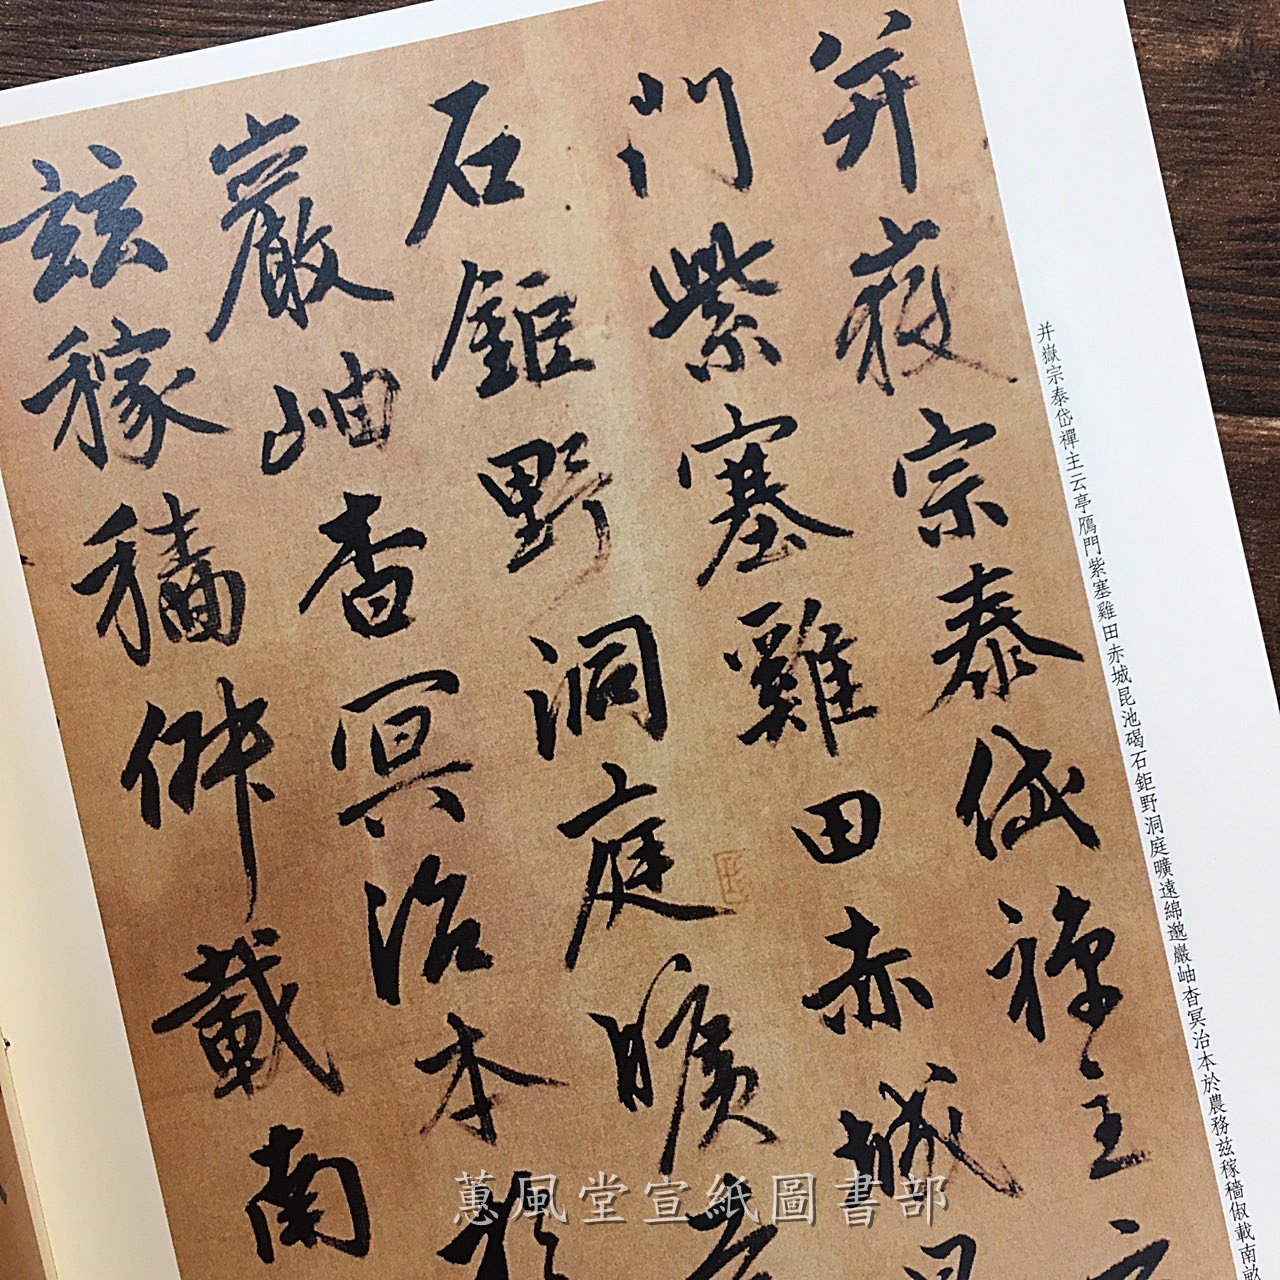 并嶽宗泰岱禪主云
門紫塞雞田赤城昆
石鉅野洞庭曠遠
巖岫杳冥治本於
茲稼穡俶載南
并嶽宗泰岱禪主云亭鴈門紫塞雞田赤城昆池碣石鉅野洞庭曠遠綿邈巖岫杳冥治本於農務玆稼穡俶載南畝
蕙風堂宣紙圖書部